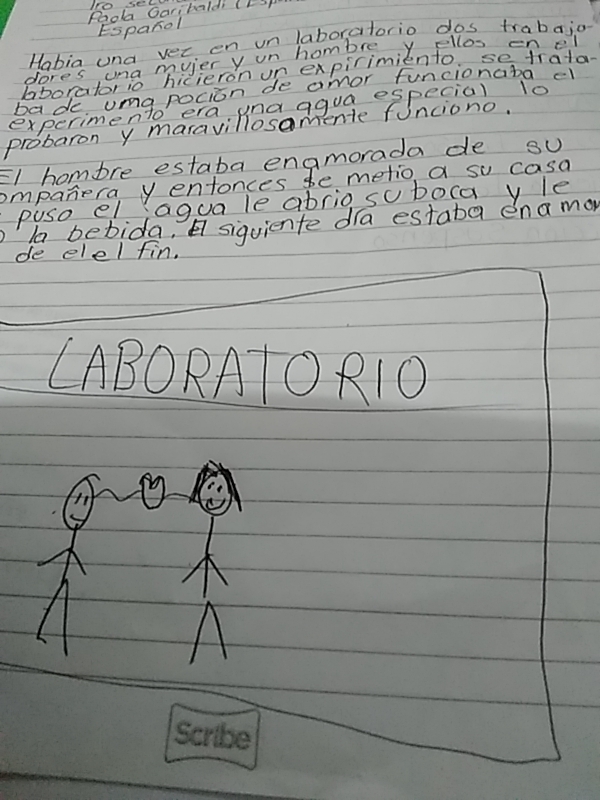 1ro secu
Paola Garibaldi (Espa
Español
Había una vez en un laboratorio dos trabaja-
dores una mujer y un hombre y ellos en el
laboratorio hicieron un expirimiento. se trata-
ba de uma poción de amor funcionaba el
experimento era una agua especial lo
probaron y maravillosamente funciono.
El hombre estaba enamorada de su
ompañera y entonces se metio a su casa
puso el agua le abrio su boca y le
o la bebida. El siguiente día estaba enamor
de el el fin.
LABORATORIO
Scribe